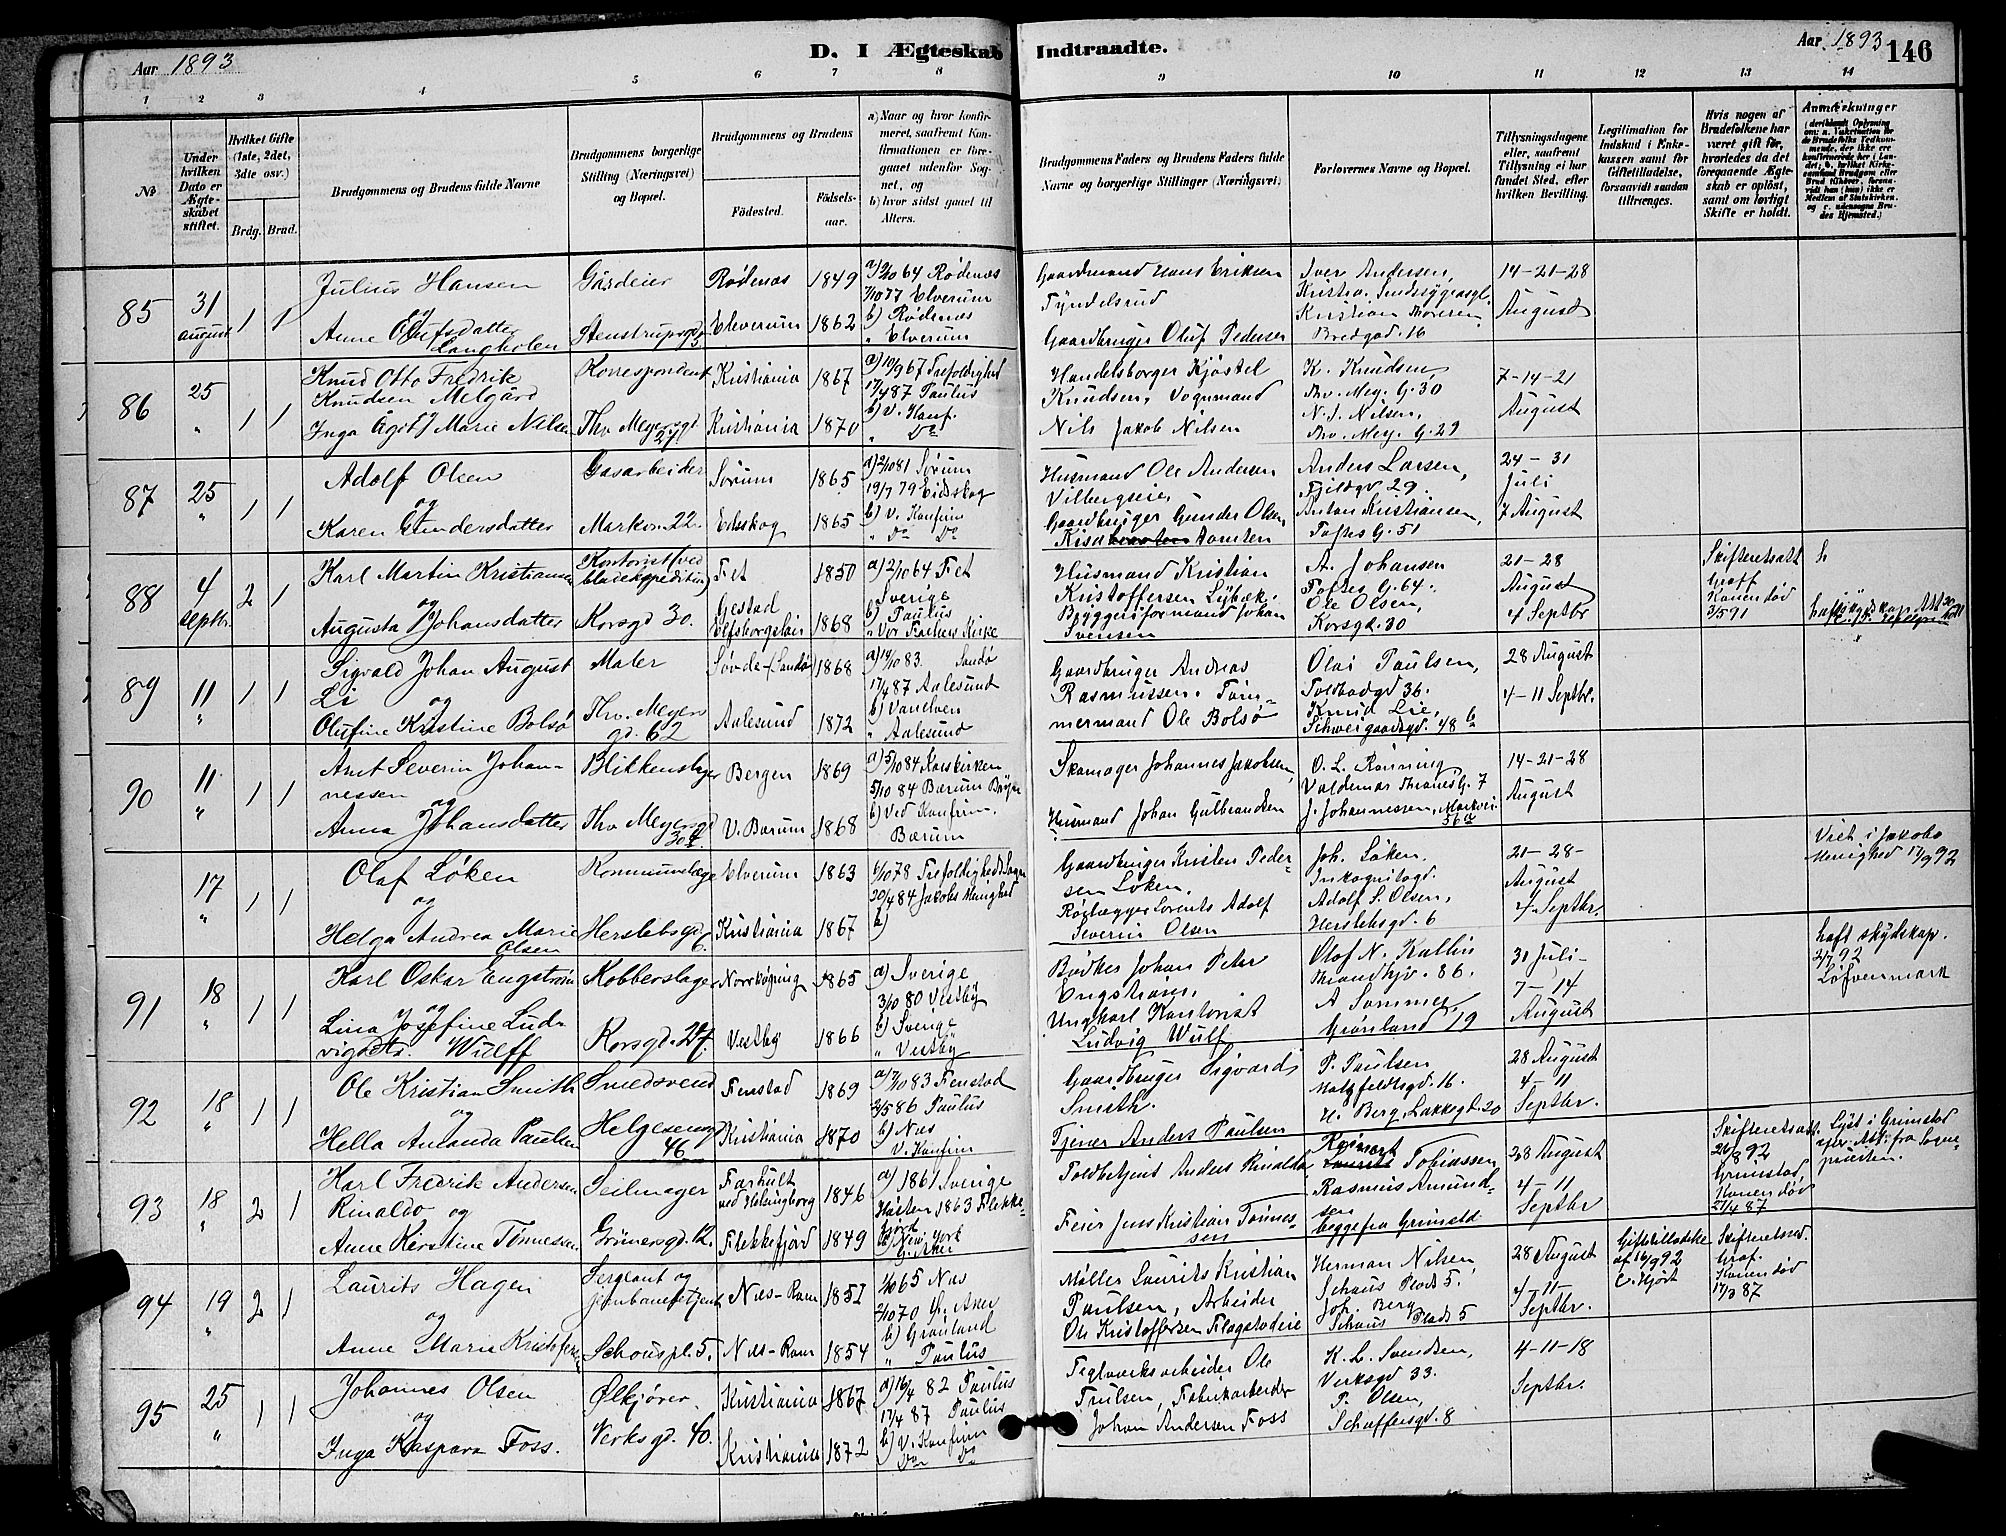 Aar 1893
D. I Ægteskab Indtraadte.
Aar 1893 146
1 2 3 4 5 6 7 8 9 10 11 12 13 14
№
Under hvilken Dato er Ægteskabet stiftet.
Hvilket Gifte (1ste, 2det, 3die osv.)
Brdg. Brud.
Brudgommens og Brudens fulde Navne
Brudgommens borgerlige Stilling (Næringsvei) og Bopæl.
Brudgommens og Brudens
Fødested.
Fødselsaar.
a) Naar og hvor konfirmeret, saafremt Konfirmationen er foregaaet udenfor Sognet, og
b) hvor sidst gaaet til Alters.
Brudgommens Faders og Brudens Faders fulde Navne og borgerlige Stillinger (Næringsvei)
Forlovernes Navne og Bopæl.
Tillysningsdagene eller, saafremt Tillysning ei har fundet Sted, efter hvilken Bevilling.
Legitimation for Indskud i Enkekassen samt for Giftetilladelse, forsaavidt saadan tiltrænges.
Hvis nogen af Brudefolkene har været gift før, hvorledes da det foregaaende Ægteskab er opløst, samt om lovligt Skifte er holdt.
Anmærkninger
85 31 August 1 1
Julius Hansen
og
Anne Olufsdatter Langholen
Gårdeier
Stenstrupsgd 3
Rødenæs 1849
Elverum 1862
a) 2/10 64 Rødenæs
7/10 77 Elverum
b) Rødenæs
" Elverum
Gaardmand Hans Eriksen
Tyndelsrud
Gaardbruger Oluf Pedersen
Iver Andersen,
Kristian Thoresen
Bredgad. 16
14-21-28
August
86 25 " 1 1
Knud Otto Fredrik
Knudsen Melgård
Inga Marie Nilsen
Korrespondent
Thv Meyersgd 27
Kristiania 1867
Kristiania 1870
17/4 87 Paulus
b) v. Konf.
" Do
Handelsborger Kjøstel
Knudsen, Vognmand
Nils Jakob Nilsen
K. Knudsen,
Thv. Mey. G. 30
N. J. Nilsen,
Thv. Mey. G. 29
7-14-21
August
87 25 " 1 1
Adolf Olsen
og
Karen Gundersdatter
Gasarbeider
Markvn 22.
Sørum 1865
Eidsskog 1865
a) 2/10 81 Sørum
19/7 79 Eidsskog
b) v. Konfirm
" Do Do
Husmand Ole Andersen
Vilbergseie,
Gaardbruger Gunder Olsen
Anders Larsen,
Fjeldgd 29
Anton Kristiansen,
Toftes G. 51
24-31
Juli
7 August
88 4 Septbr. 2 1
Karl Martin Kristiansen
og
Augusta Johansdatter
Kontorist (ved
bladekspedition)
Korsgd 30.
Fet 1850
Gestad
Elfsborgslän 1868
a) 2/10 64 Fet
Sverige
b) Paulus
" Vor Frelsers Kirke
Husmand Kristian
Kristoffersen Lybæk,
Bryggeriformand Johan
Svensen
A. Johansen
Toftes G. 64.
Ole Olsen,
Korsgd. 30
21-28
August
4 Septbr
Skifteretsatt
Graff
Konen død
3/5 91
89 11 " 1 1
Sigvald Johan August
Li
og
Olufine Kristine Bolsø
Maler
Thv. Meyers
gd. 62
Søvde (Sandø) 1868
Aalesund 1872
a) 14/10 83. Sandø
17/4 87 Aalesund
b) Vanelven
" Aalesund
Gaardbruger Andreas
Rasmussen. Tømmermand Ole Bolsø
Olai Paulsen,
Toldbodgd 36.
Knud Lie,
Schweigaardsgd. 48 b
28 August
4-11 Septbr.
90 11 " 1 1
Anet Severin Johannessen
og
Anna Johansdatter
Blikkenslager
Thv Meyersgd
30
Bergen 1869
V. Bærum 1868
a) 5/10 84 Korskirken
5/10 84 Bærum
b) Ved Konfirm.
Bærum
Skomager Johannes Jakobsen,
Husmand Johan Gulbrandsen
O. L. Rønning
Valdemar Thranesg. 7
J. Johannessen, Markvei. 56 a
14-21-28
August
17 " 1 1
Olaf Løken
og
Helga Andrea Marie
Olsen
Kommunelæge
Herslebsgd
6.
Elverum 1863
Kristiania 1867
6/10 78 Trefoldigheds Sogn
20/4 84 Jakobs Menighed
b)
Gaardbruger Kristen Pedersen Løken.
Rørlægger Lorents Adolf
Severin Olsen
Joh. Løken,
Inkognitogd.
Adolf S. Olsen,
Herslebsgd. 6
21-28-
August
4 Septbr.
Viet i Jakobs
Menighed 17/9 92
91 18 " 1 1
Karl Oskar Engström
og
Lina Josefine Ludvigdtr. Wulff
Kobberslager
Korsgd. 27.
Norrköping 1865
Vestby 1866
a) Sverige
3/10 80 Vestby
b) Sverige
" Vestby
Bødker Johan Peter
Engstrøm,
Ungkarl Kontorist
Ludvig Wulf
Olof N. Kallin
Trondhjv. 86.
A Sommer,
Grønland 19
31 Juli-
7-14
August
haft skydskap.
2/7 92
Löfvenmark
92 18 " 1 1
Ole Kristian Smith
og
Hella Amanda Paulsen
Smedsvend
Helgesensg
46
Fenstad 1869
Kristiania 1870
a) 7/10 83 Fenstad
2/5 86 Paulus
b) Næs
V. Konfirm
Gaardbruger Sigvard
Smith.
Tjener Anders Paulsen
P. Paulsen
Motzfeldtsgd. 16.
H. Berg, Lakkegd. 20
28 August
4-11
Septbr.
93 18 " 2 1
Karl Fredrik Andersen
Rinaldo og
Anne Kirstine Tønnessen
Seilmager
Grünersgd. 12.
Farhult
ved Helsingborg 1846
Flekkefjord 1849
a) 1861 Sverige
Høsten 1863 Flekkefjord
b) New York
Toldbetjent Anders Rinaldo
Feier Jens Kristian Tønnessen
Reinert Tobiassen
Rasmus Amundsen
begge fra Grimstd
28 August
4-11
Septbr
Skifteretsatt.
26/8 92
Grimstad
Konen død
21/4 87
Lyst i Grimstad
efter Att. fra Sognepresten.
94 19 " 2 1
Laurits Hagen
og
Anne Marie Kristofersen
Sergeant og
jernbanebetjent
Schouspl. 5.
Næs-Rom 1851
Næs-Rom 1854
1/10 65 Næs
2/10 70 Ø. Aker
b) Grønland
" Paulus
Møller Laurits Kristian
Paulsen, Arbeider
Ole Kristoffersen Flagstadeie
Herman Nilsen,
Schous Plads 5.
Joh. Berg
Schous Plads 5
28 August
4-11-
Septbr.
Giftetilladelse
af 16/9 92
C. Hjort
Skifteretsad.
Graf.
Konen død
17/3 87
95 25 " 1 1
Johannes Olsen
og
Inga Kaspara Foss.
Ølkjører
Verksgd. 40.
Kristiania 1867
Kristiania 1872
a) 16/4 82 Paulus
17/4 87 Paulus
b) V. Konfirm
Do Do
Teglverksarbeider Ole
Trulsen, Fabrikarbeider
Johan Andersen Foss
K. L. Svendsen,
Verksgd 33.
P. Olsen,
Schaffersgd. 8
4-11-18
Septbr.